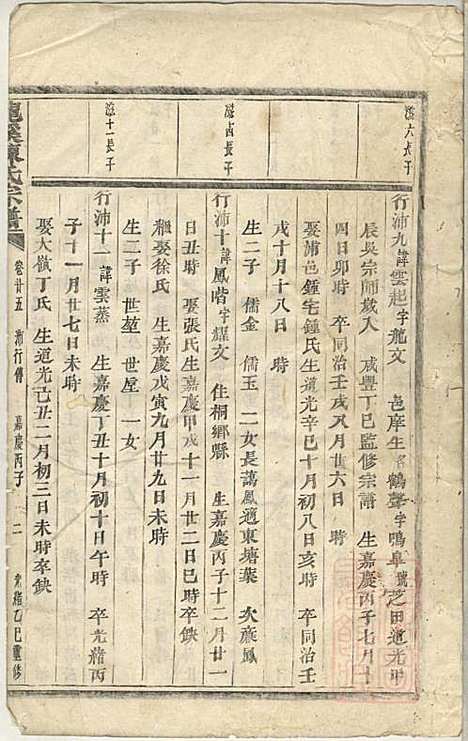 行沛九諱雲起字龍文 邑庠生名鶴聲字鳴臯號芝田道光甲
辰吳宗師歲入 咸豐丁巳監修宗譜 生嘉慶丙子七月十
四日卯時 卒同治壬戌八月廿六日 時
娶浦邑鍾宅鍾氏生道光辛巳十月初八日亥時 卒同治壬
戌十月十八日 時
生二子 儒金 儒玉 二女長適東塘葉 次
行沛十諱鳳喈字耀文 住桐鄉縣 生嘉慶丙子十二月廿一
日丑時 娶張氏生嘉慶甲戌十一月廿二日巳時 卒缺
繼娶徐氏 生嘉慶戊寅九月廿九日未時
生二子 世堃 世屋 一女
行沛十一諱雲蒸 生嘉慶丁丑十月初十日午時 卒光緒丙
子十一月廿七日未時
娶大嶺丁氏 生道光己丑二月初三日未時卒缺
龍溪陳氏宗譜 卷廿五 沛行傳 嘉慶丙子 二 光緒乙巳重修